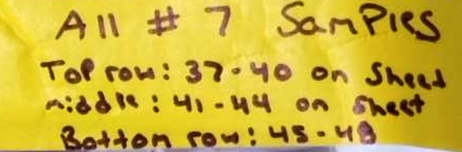 All # 7 Samples
Top row: 37-40 on Sheet
middle: 41-44 on Sheet
Bottom row: 45-48